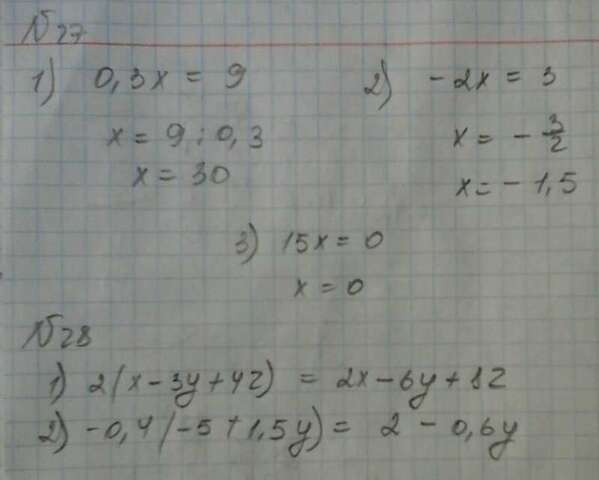 №27
1) 0,3x = 9
x = 9 : 0,3
x = 30
2) -2x = 3
x = - 3/2
x = - 1,5
3) 15x = 0
x = 0
№28
1) 2(x - 3y + 4z) = 2x - 6y + 8z
2) -0,4(-5 + 1,5y) = 2 - 0,6y